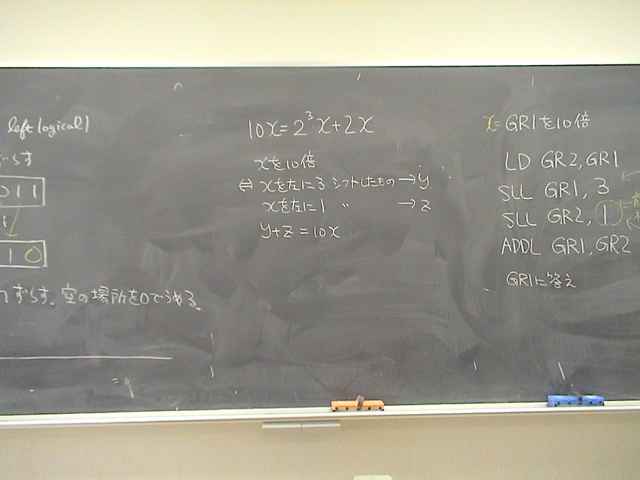 left logical)
ずらす
011
10
ずらす。空の場所を0でうめる。
10x=2³x+2x
xを10倍
⇔ xを左に3 シフトしたもの → y
xを左に1 〃 → z
y+z=10x
x=GR1を10倍
LD GR2,GR1
SLL GR1,3
SLL GR2,1
ADDL GR1,GR2
GR1に答え